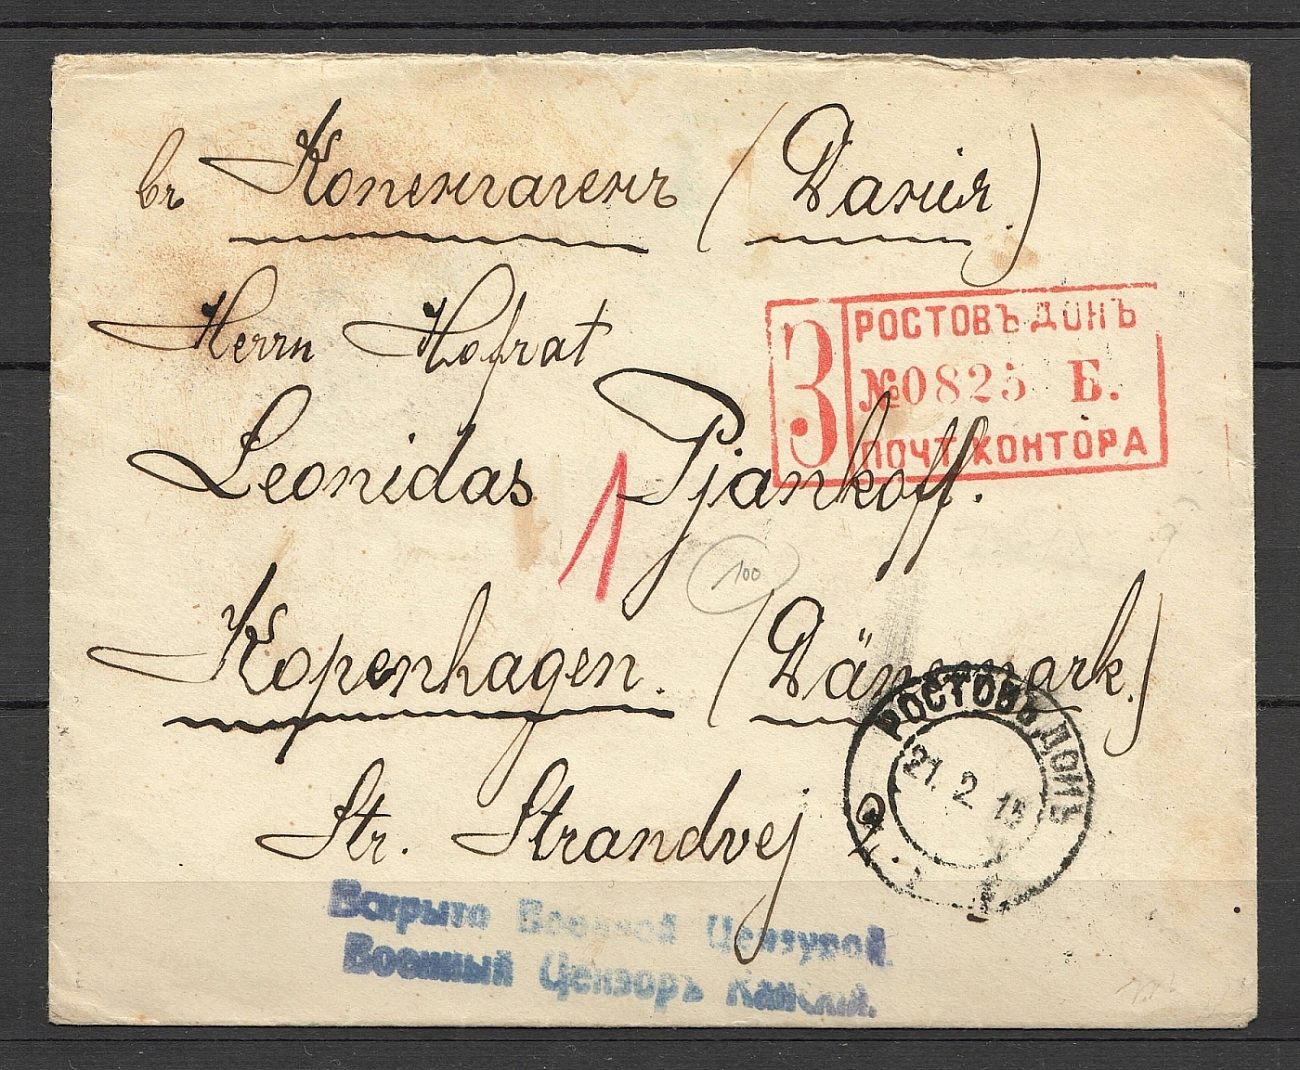 въ Копенгагенъ (Данія.)
Herrn Hofrat
Leonidas Pjankoff.
Kopenhagen. (Dänemark.)
Str. Strandvej
З
РОСТОВЪ ДОНЪ
№0825 Б.
ПОЧТ. КОНТОРА
1
100
РОСТОВЪ ДОНЪ
21. 2 15
Вскрыто Военной Цензурой.
Военный Цензоръ